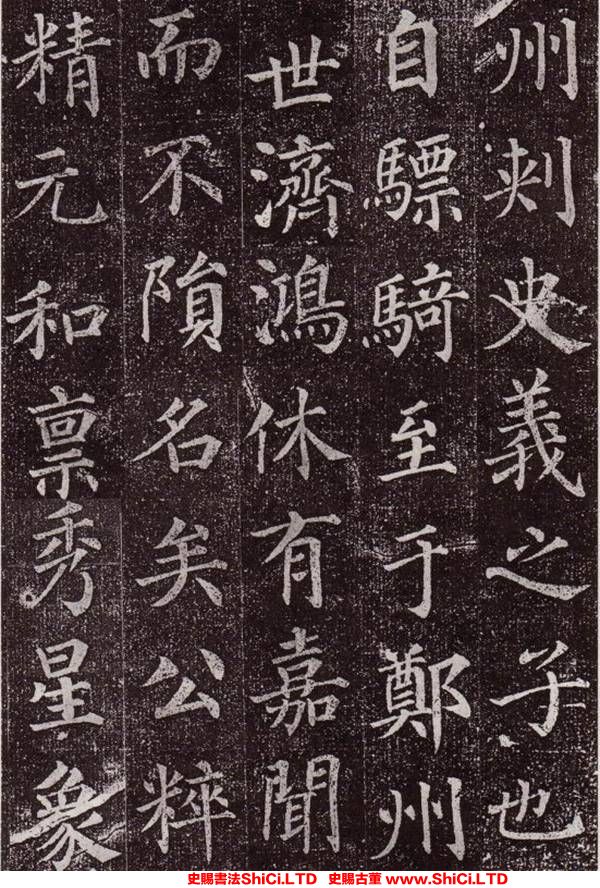 州刺史義之子也
自驃騎至于鄭州
世濟鴻休有嘉聞
而不隕名矣公粹
精元和禀秀星象
史賜書法ShiCi.LTD 史賜古董 www.ShiCi.LTD